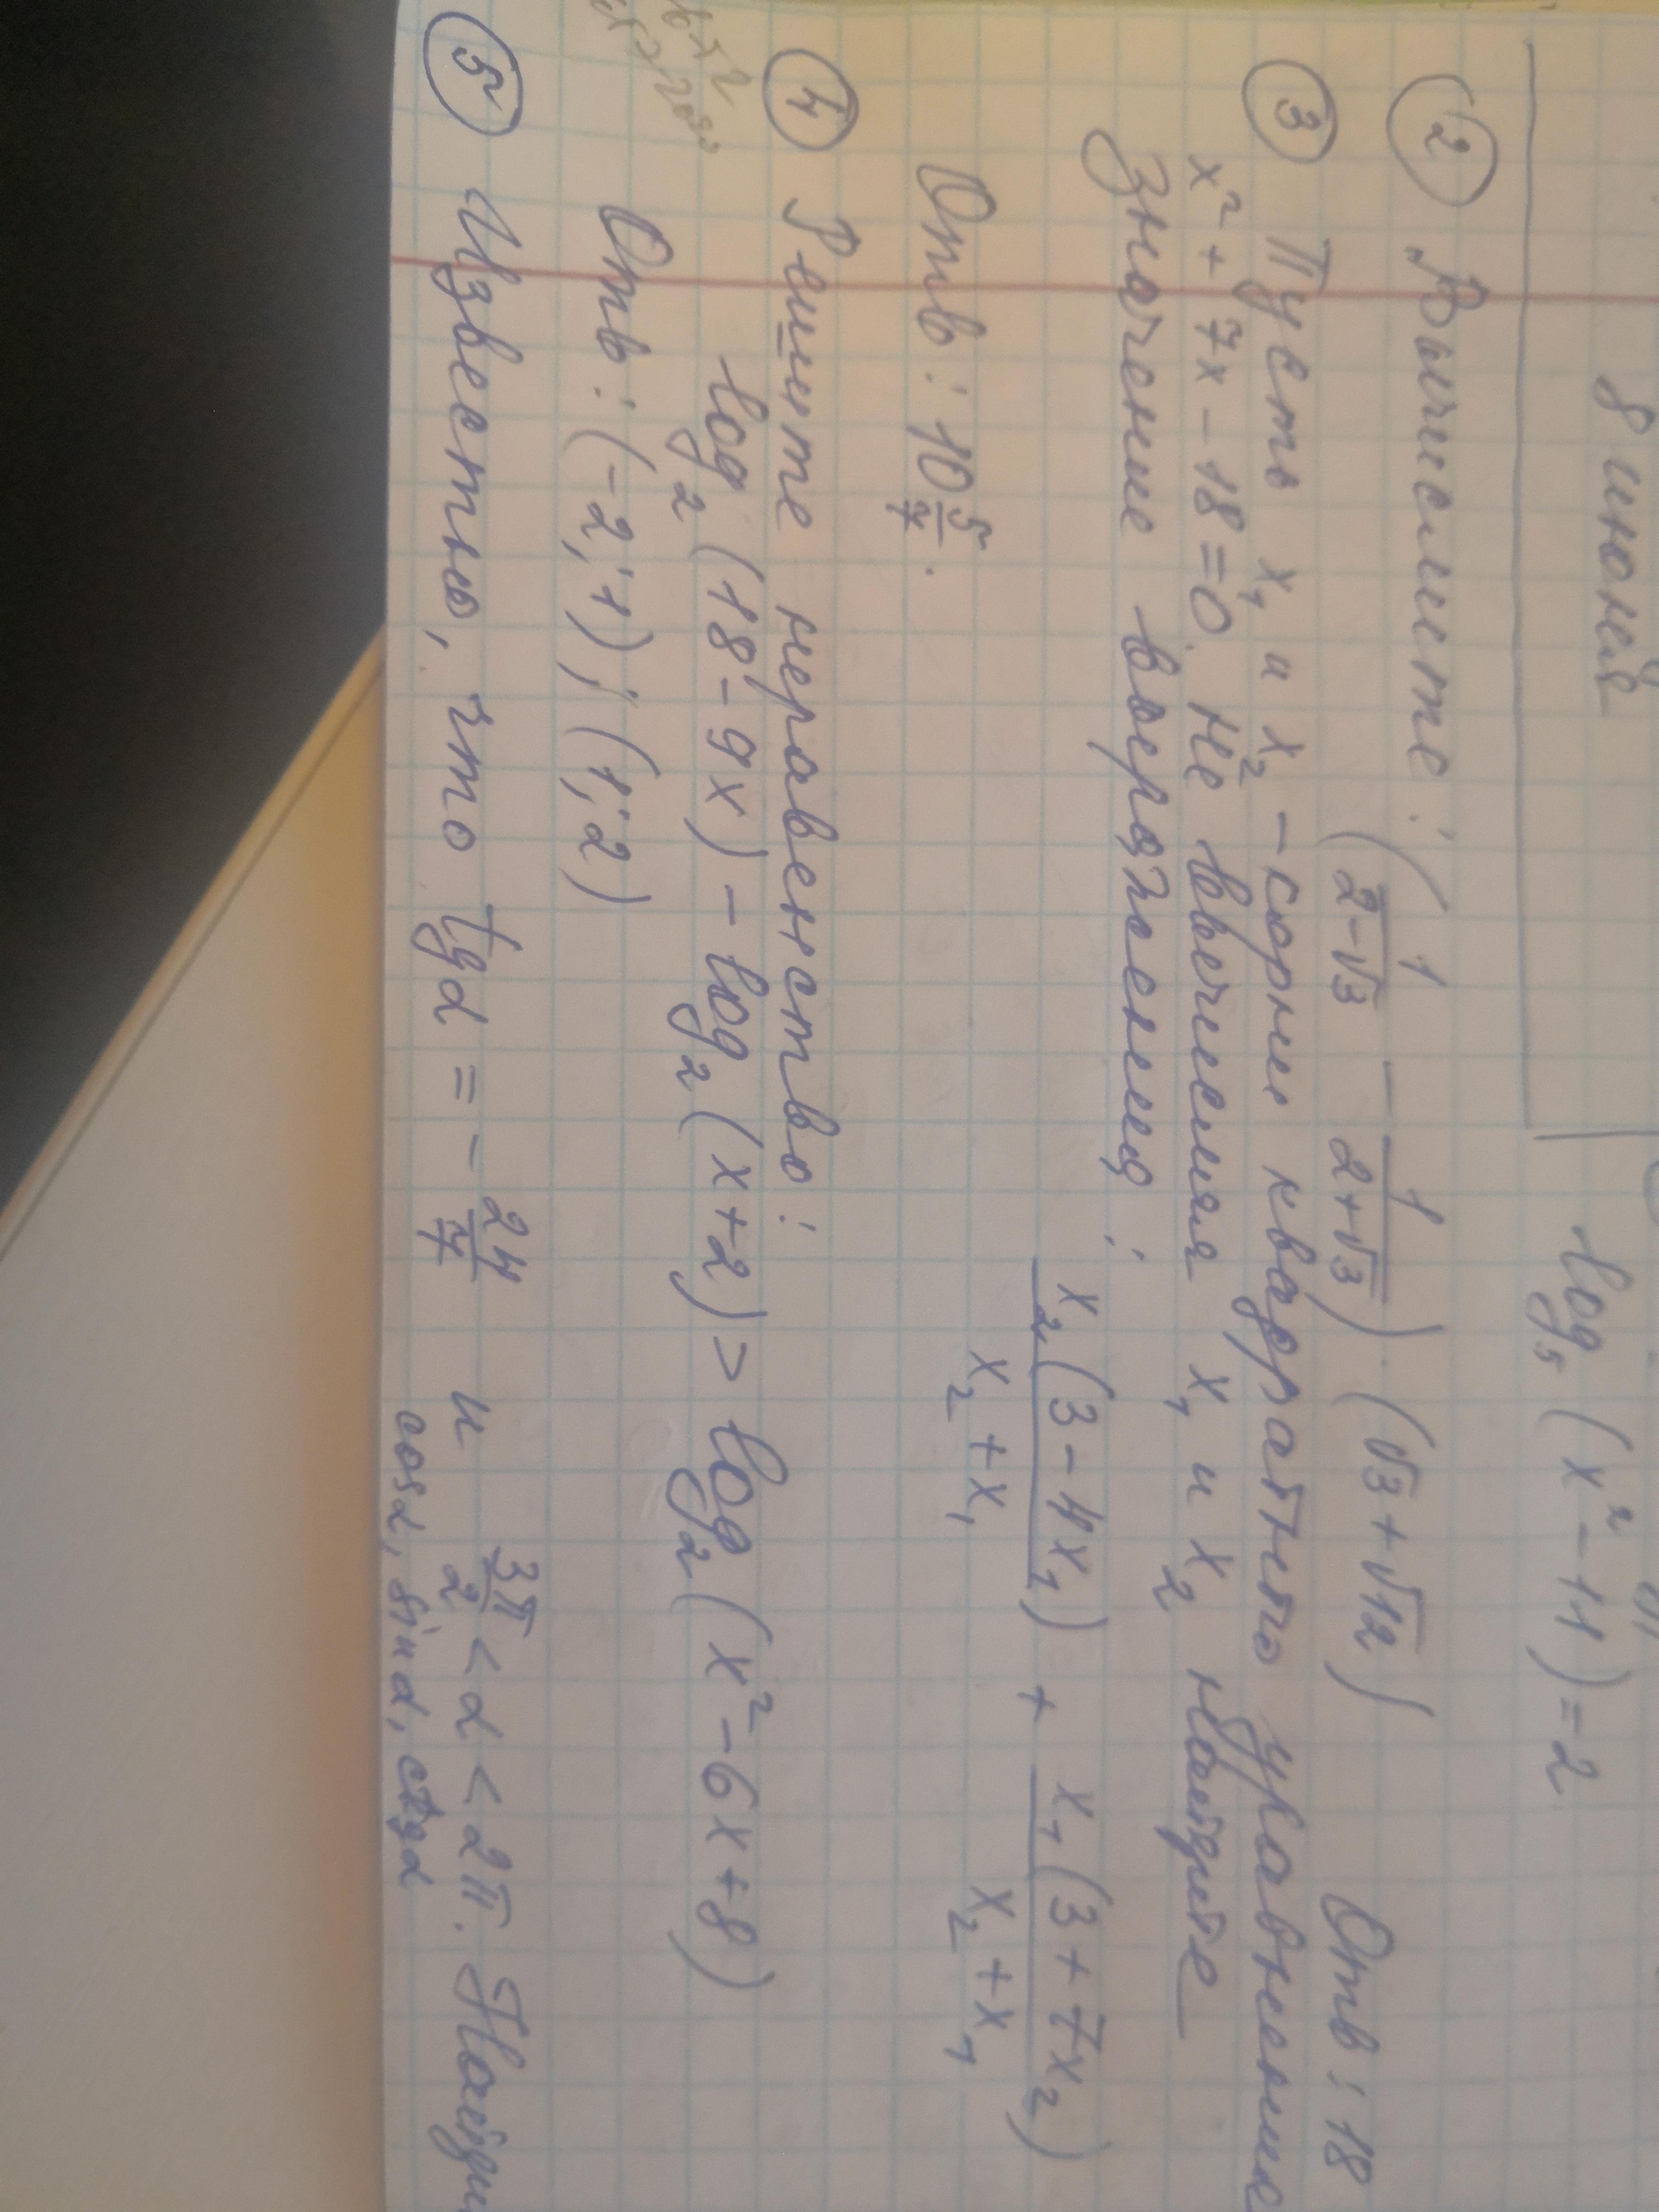 8 июней
log₅(x² - 11) = 2
② Вычислите: (1/(2-√3) - 1/(2+√3)) · (√3 + √12) Отв: 18
③ Пусть x₁ и x₂ - корни квадратного уравнение
x² + 7x - 18 = 0. Не вычисляя x₁ и x₂ найдите
Значение выражения:
x₂(3 - 4x₁)/(x₂ + x₁) + x₁(3 + 7x₂)/(x₂ + x₁)
Отв: 10 5/7.
④ Решите неравенство:
log₂(18 - 9x) - log₂(x+2) > log₂(x² - 6x + 8)
Отв: (-2; 1); (1; 2)
⑤ Известно, что tgα = - 24/7 и 3π/2 < α < 2π. Найди
cosα, sinα, ctgα